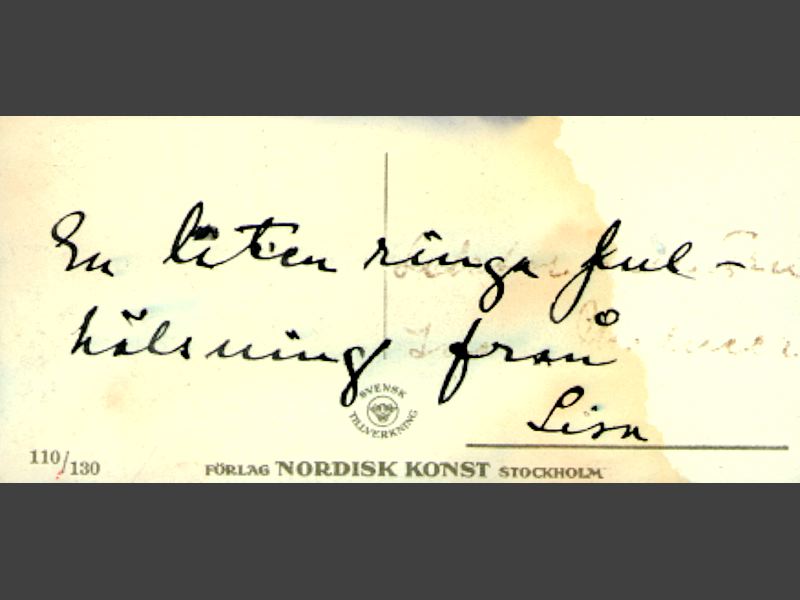 En liten ringa Jul-
hälsning från
Lisa
SVENSK
TILLVERKNING
110/130
FÖRLAG NORDISK KONST STOCKHOLM